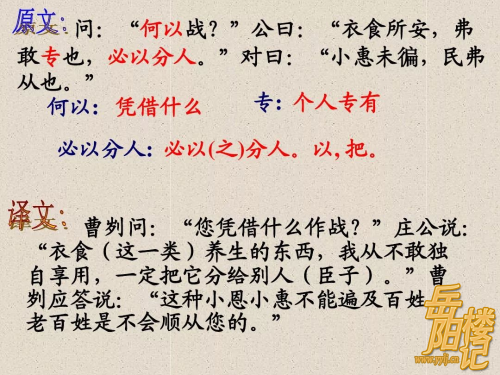 原文：问：“何以战？”公曰：“衣食所安，弗
敢专也，必以分人。”对曰：“小惠未徧，民弗
从也。”
何以：凭借什么 专：个人专有
必以分人：必以(之)分人。以，把。
译文：
曹刿问：“您凭借什么作战？”庄公说：
“衣食（这一类）养生的东西，我从不敢独
自享用，一定把它分给别人（臣子）。”曹
刿应答说：“这种小恩小惠不能遍及百姓，
老百姓是不会顺从您的。”
岳阳楼记